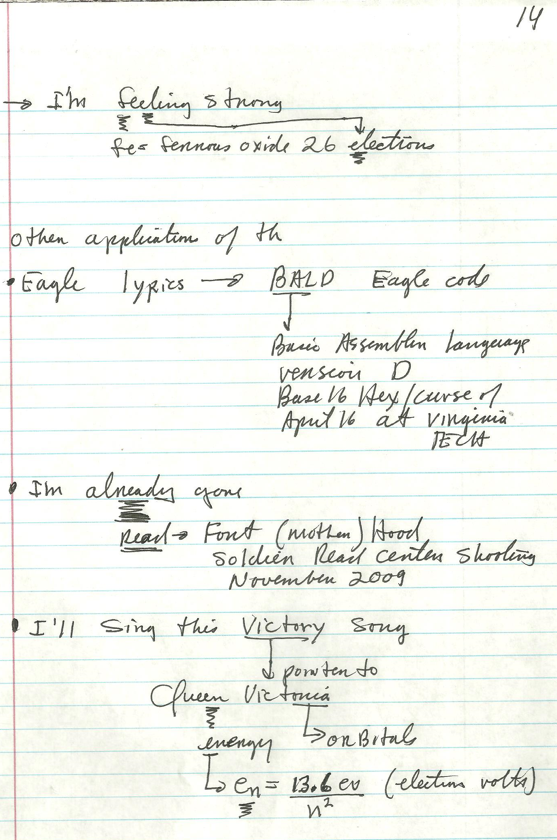 14
→ I'm feeling strong
fe = ferrous oxide 26 electrons
other application of th
• Eagle lyrics → BALD Eagle code
Basic Assembler Language
verscoin D
Base 16 Hex/curse of
April 16 at virginia
TECH
• I'm already gone
Read → Fort (mother) Hood
Soldier Read center shooting
November 2009
• I'll Sing this Victory Song
pointer to
Queen Victoria
energy → orBitals
en = 13.6 ev / n² (electron volts)